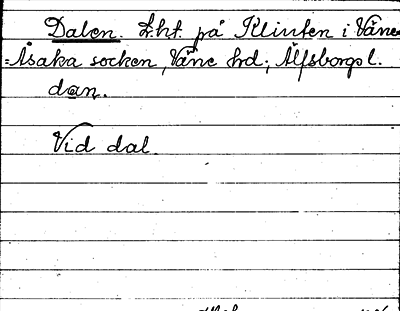 Dalen. Lht. på Klinten i Väne
=Åsaka socken, Väne hd; Älfsborgs l.
dan.
Vid dal.